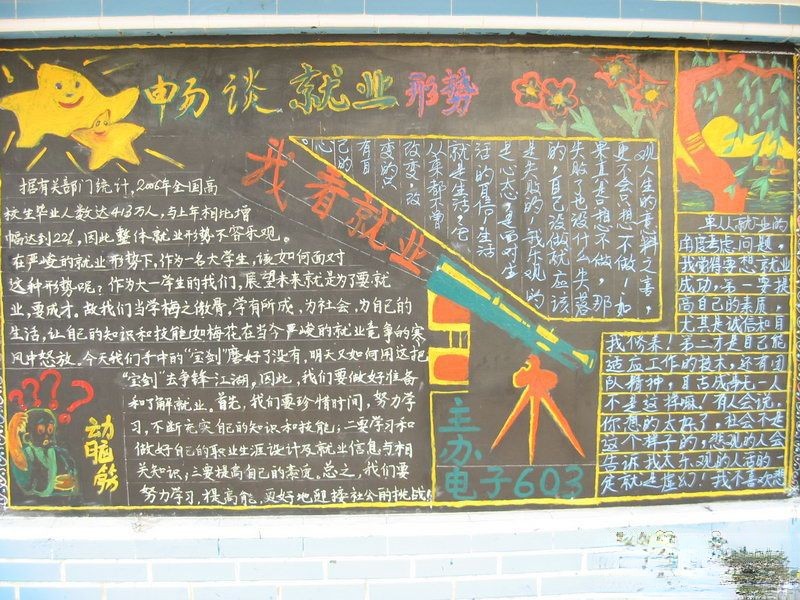 畅谈就业形势
据有关部门统计,2006年全国高
校生毕业人数达413万人,与上年相比增
幅达到22%,因此整体就业形势不容乐观。
在严峻的就业形势下,作为一名大学生,该如何面对
这种形势呢?作为大一学生的我们,展望未来就是为了要就
业,要成才。故我们当学梅之傲骨,学有所成,为社会,为自己的
生活,让自己的知识和技能如梅花在当今严峻的就业竞争的寒
风中怒放。今天我们手中的“宝剑”磨好了没有,明天又如何用这把
“宝剑”去争锋江湖。因此,我们要做好准备
和了解就业。首先,我们要珍惜时间,努力学
习,不断充实自己的知识和技能;二要学习和
做好自己的职业生涯设计及就业信息与相
关知识;三要提高自己的素质。总之,我们要
努力学习,提高能,更好地迎接社会的挑战!
动脑筋
我看就业
观人生的意料之喜,
更不会只想不做!如
果真是只想不做,那
失败了也没什么失落
的,自己没做就应该
是失败的。我乐观的
是心态,更面对生
活的自信。生活
就是生活,它
从来都不曾
改变,改
变的只
有自
己的
心
主办
电子603
单从就业的
角度考虑问题,
我觉得要想就业
成功,第一要提
高自己的素质,
尤其是诚信和自
我修养!第二才是自己能
适应工作的技术,还有团
队精神,自古成事无一人
不是这样嘛!有人会说,
你想的太好了,社会不是
这个样子的,悲观的人会
告诉我太乐观的人活的一
定就是虚幻!我不喜欢悲